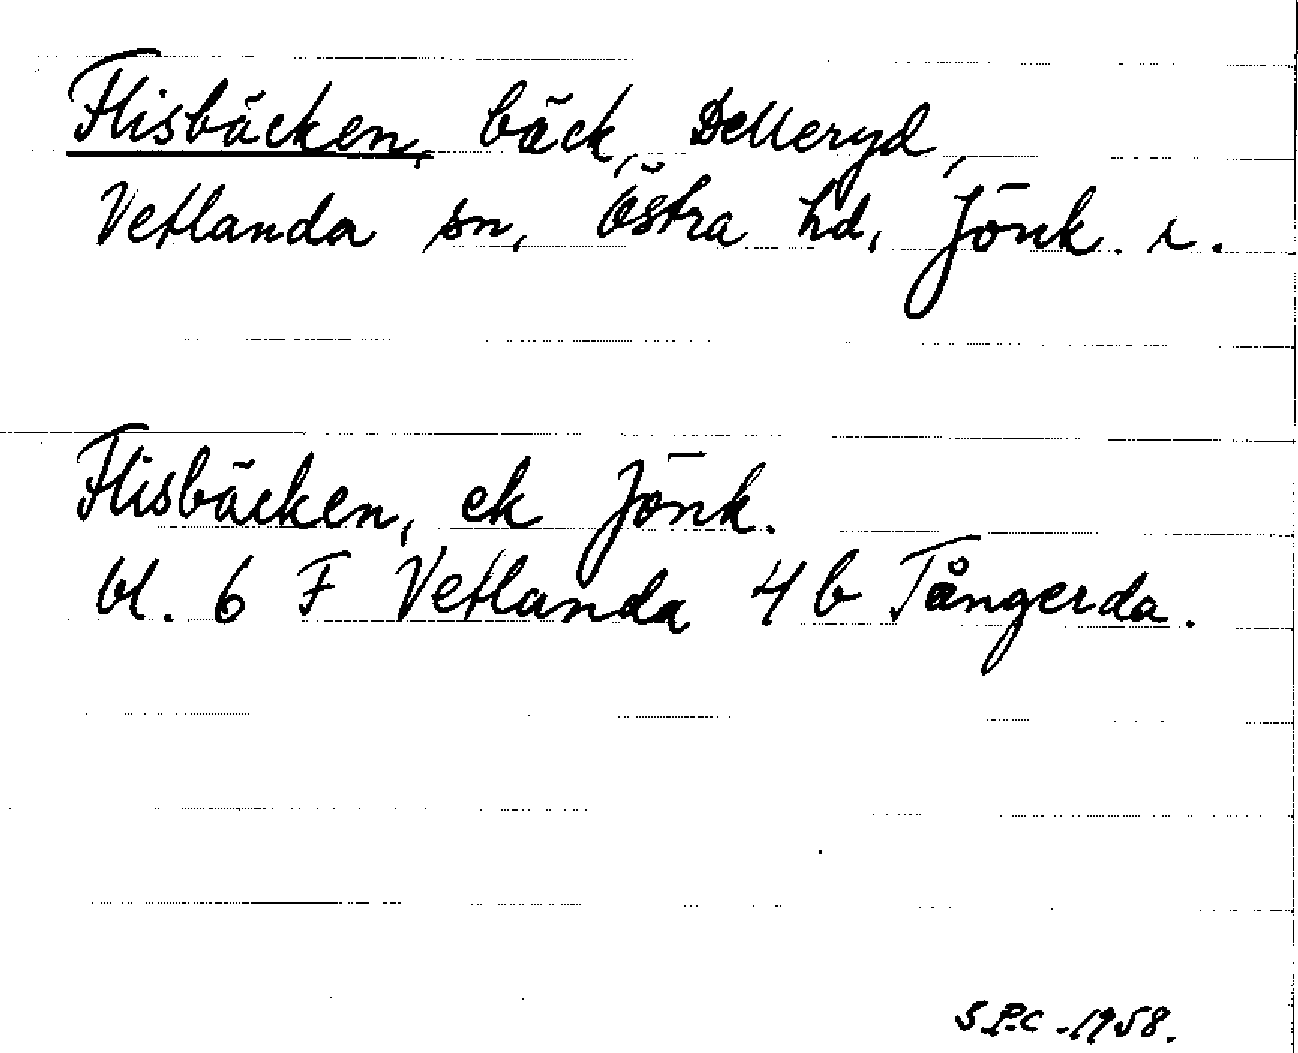 Flisbäcken, bäck, Delleryd,
Vetlanda sn, Östra hd, Jönk. l.
Flisbäcken, ek Jönk.
bl. 6 F Vetlanda 4 b Tångerda.
S.P.C -1958.